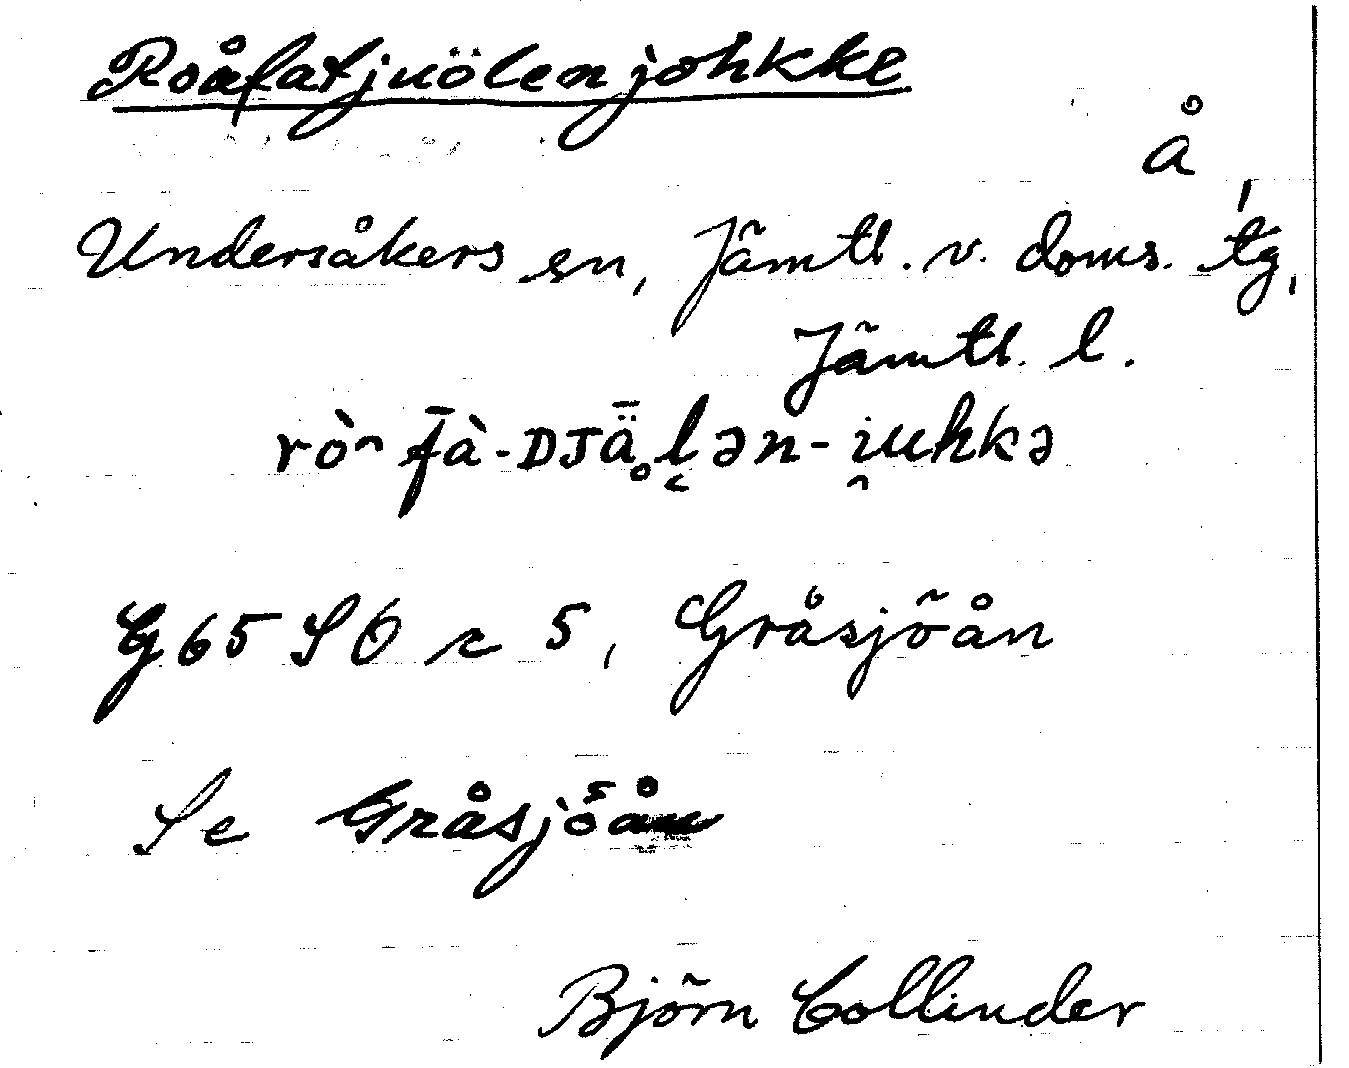 Roåfatjuölenjohkke
å
Undersåkers sn, Jämtl. v. doms. tg,
Jämtl. l.
G65 SÖ c 5, Gråsjöån
Se Gråsjöån
Björn Collinder